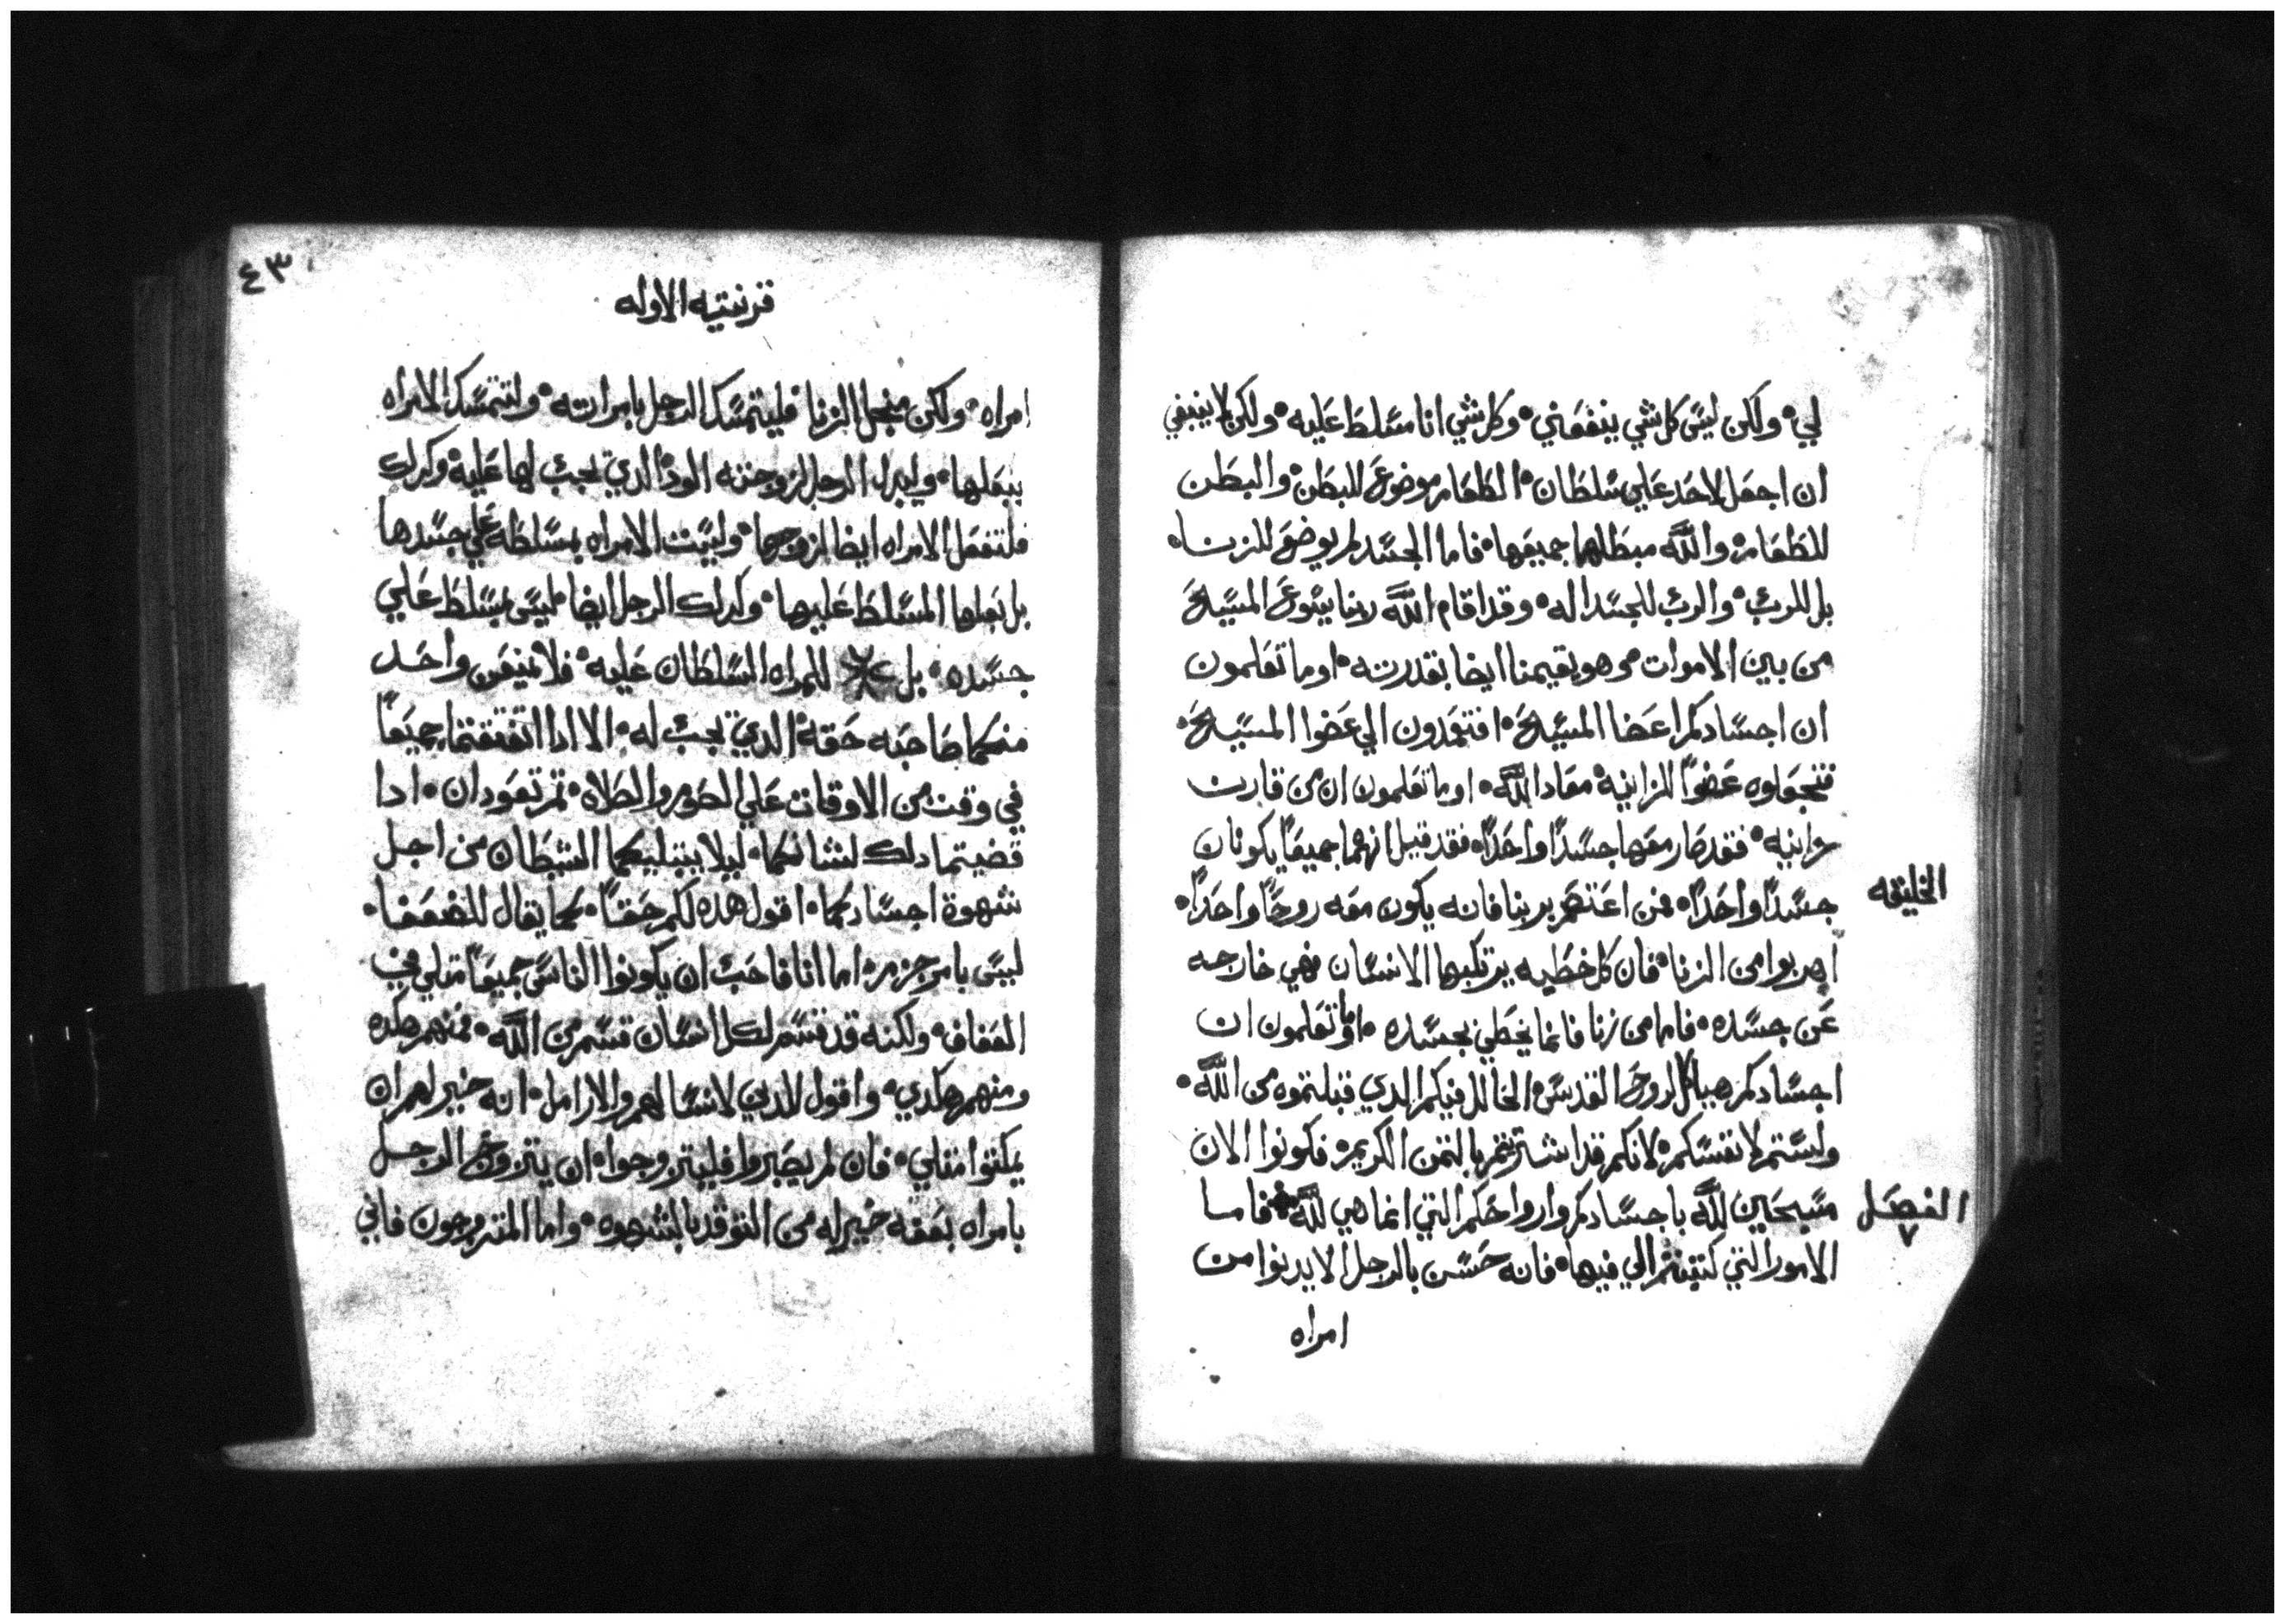 لي۰ ولكن ليس كل شي ينفعني۰ وكل شي انا مسلط عليه۰ ولكن لا ينبغي
ان اجعل لاحد علي سلطان۰ الطعام موضوع للبطن۰ والبطن
للطعام۰ والله مبطلهما جميعها۰ فاما الجسد لم يوضع للزنا۰
بل للرب۰ والرب للجسد اله۰ وقد اقام الله ربنا يسوع المسيح
من بين الاموات وهو يقيمنا ايضا بقدرته۰ اوما تعلمون
ان اجسادكم اعضا المسيح۰ افتعمدون الي عضوا المسيح۰
فتجعلوه عضوا للزانية۰ معاد الله۰ اوما تعلمون ان من قارن
زانيه۰ فقد صار معها جسدا واحدا۰ فقد قيل انهما جميعا يكونان
الخليقه
جسدا واحدا۰ فمن اعتصم بربنا فانه يكون معه روحا واحدا۰
اهربوا من الزنا۰ فان كل خطيه يرتكبها الانسان فهي خارجه
عن جسده۰ فاما من زنا فانما يخطي بجسده۰ اوما تعلمون ان
اجسادكم هياكل لروح القدس۰ الحال فيكم الدي قبلتموه من الله۰
ولستم لانفسكم۰ لانكم قد اشتريتم بالتمن الكريم۰ فكونوا الان
الفصل ٧
مسبحين لله باجسادكم وارواحكم التي انما هي لله۰ فاما
الامور التي كتبتم الي فيها۰ فانه حسن بالرجل الا يدنوا من
امراه
٤٣
قرنتيه الاوله
امراه۰ ولكن منجل الزنا فليتمسك الرجل بامراته۰ ولتتمسك الامراه
ببعلها۰ وليبدل الرجل لزوجته الود الدي يجب لها عليه۰ وكدلك
فلتفعل الامراه ايضا لزوجها۰ وليست الامراه بمسلطه علي جسدها
بل بعلها المسلط عليها۰ وكدلك الرجل ايضا ليس بمسلط علي
جسده۰ بل للمراه السلطان عليه۰ فلا يمنعن واحد
منكما صاحبه حقه الدي يجب له۰ الا ادا اتفقتما جميعا
في وقت من الاوقات علي الصوم والصلاه۰ تم تعودان۰ ادا
قضيتما دلك لشانكما۰ ليلا يبتليكما الشيطان من اجل
شهوة اجسادكما۰ اقول هده لكم حقا۰ كما يقال للضعفا۰
ليس بامر جزم۰ اما انا فاحب ان يكونوا الناس جميعا متلي في
العفاف۰ ولكنه قد قسم لكل انسان قسم من الله۰ فمنهم هكده
ومنهم هكدي۰ واقول للدين لا نسا لهم والارامل۰ انه خير لهم ان
يمكتوا متلي۰ فان لم يصبروا فليتزوجوا۰ ان يتزوج الرجل
بامراه بعفه خير له من التوقد بالشهوه۰ واما المتزوجون فاني